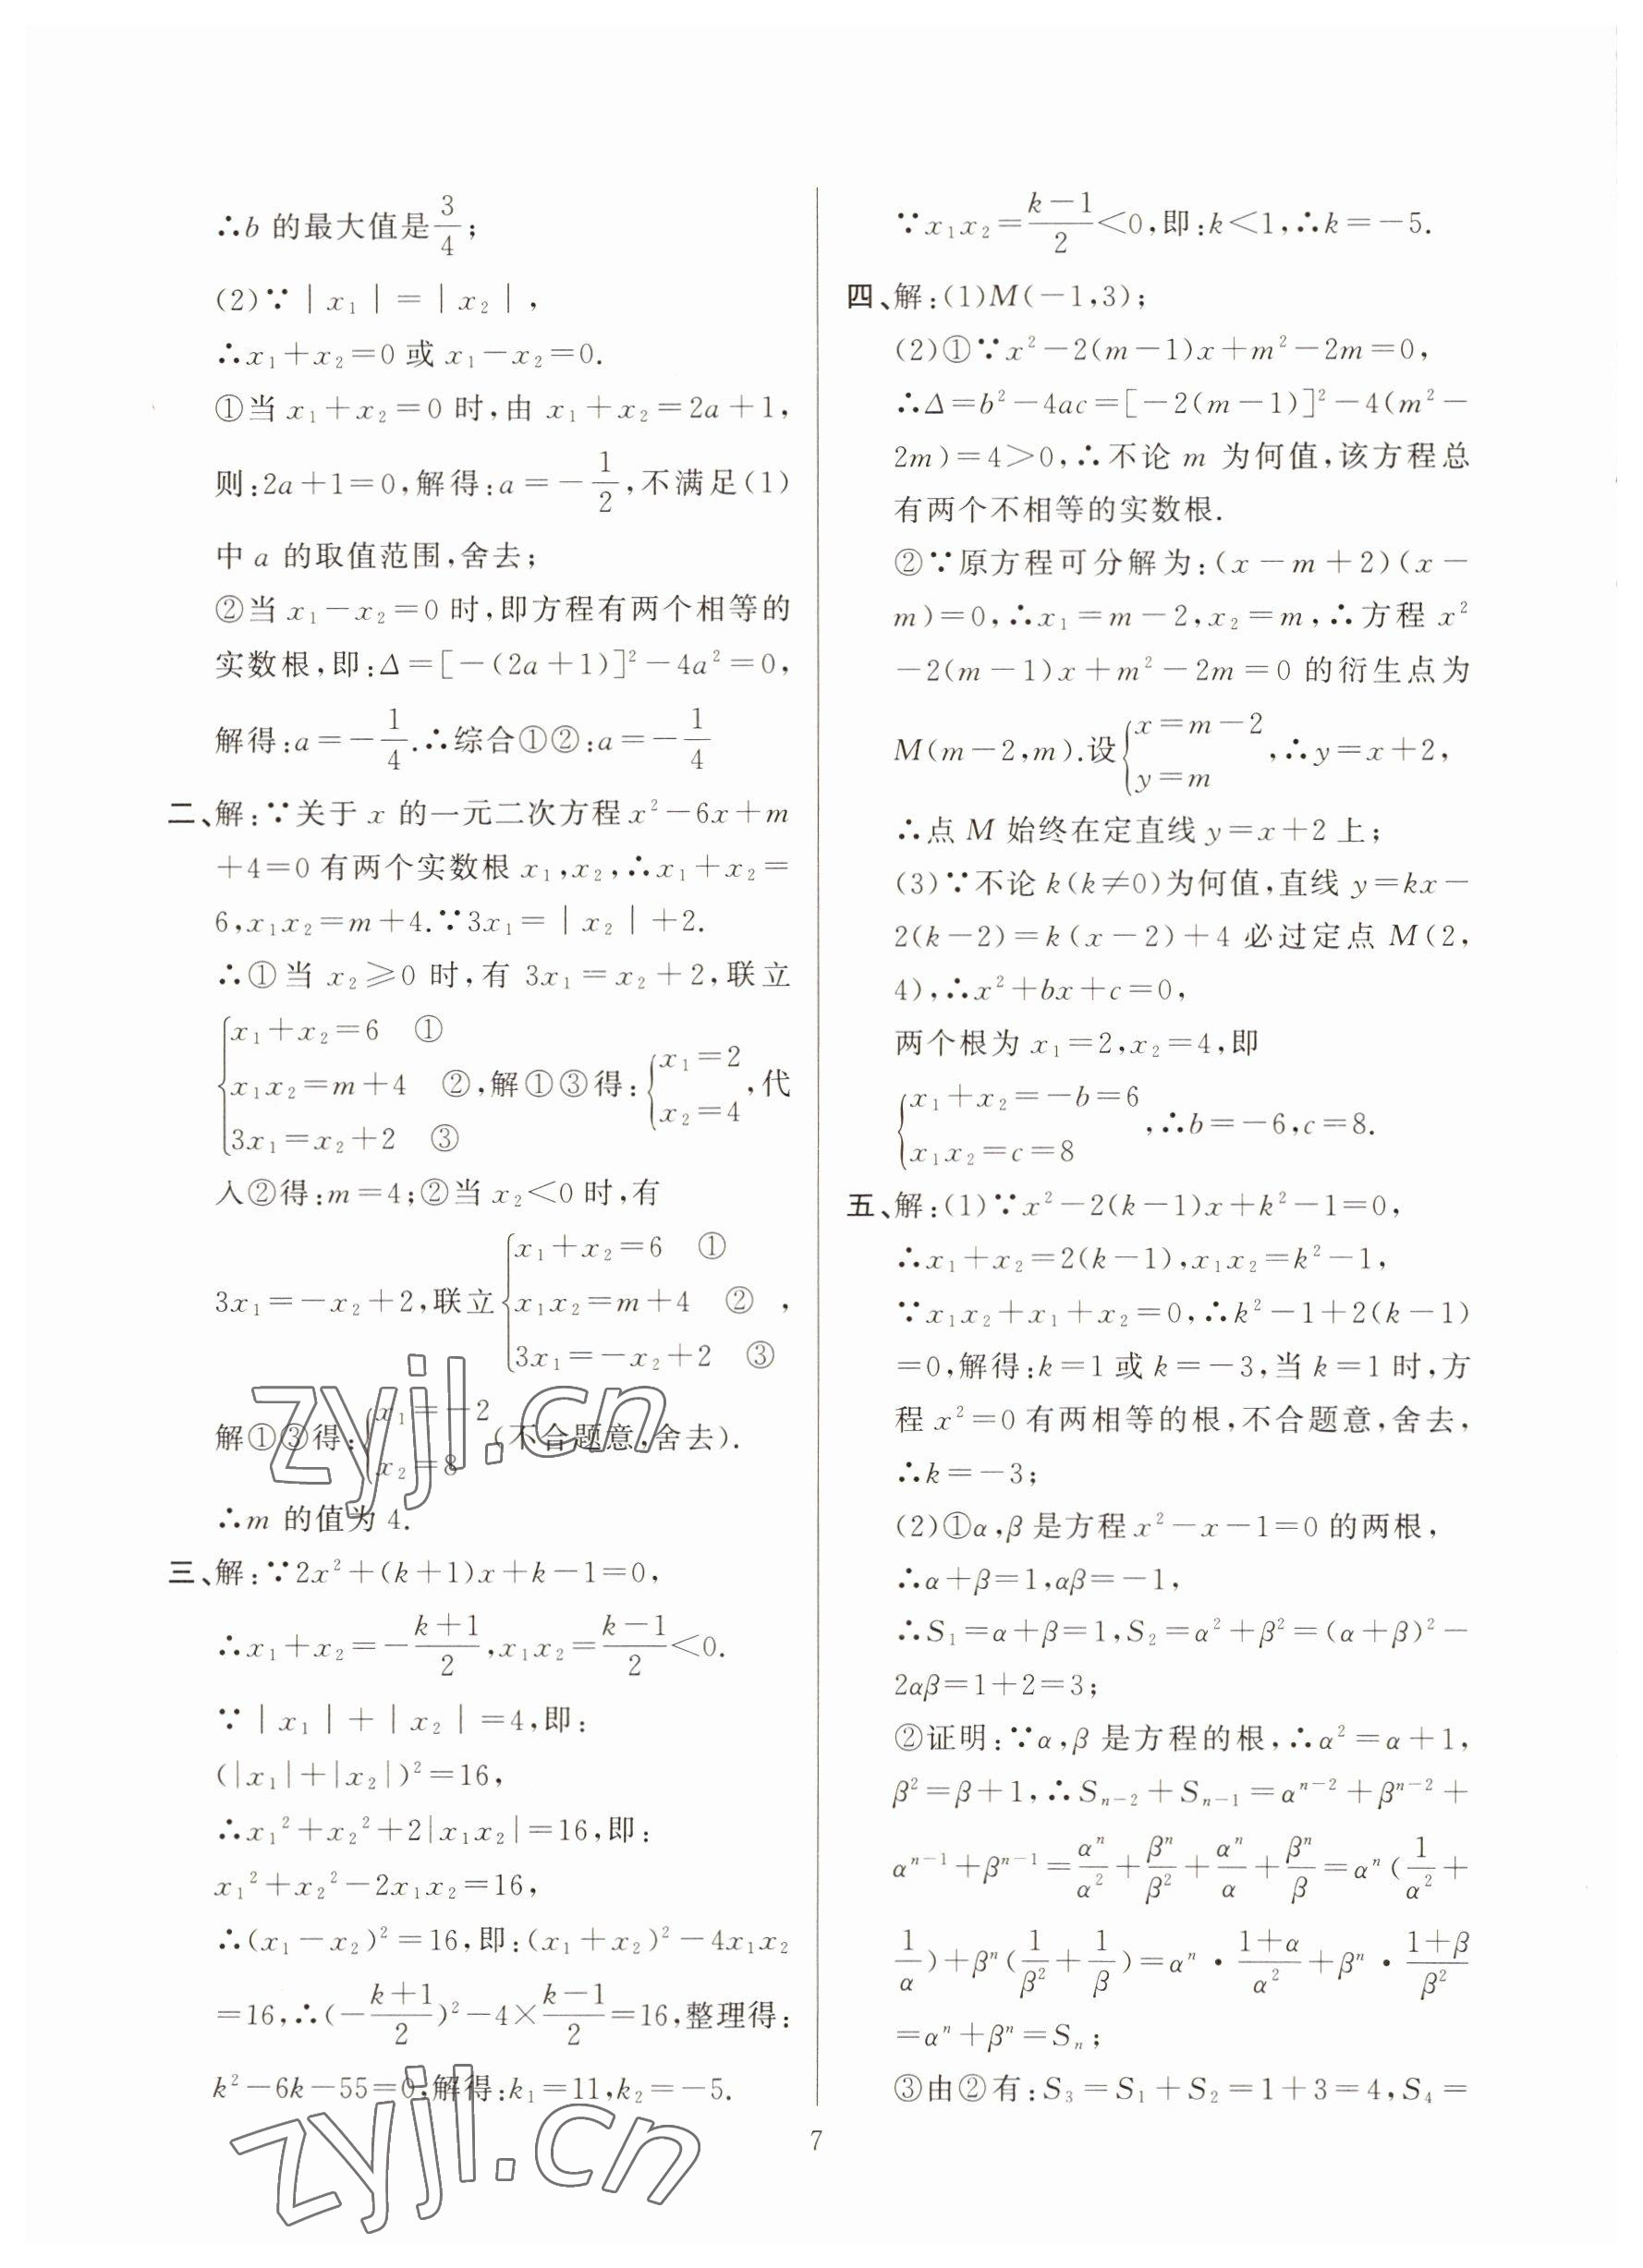 ∴b 的最大值是3/4;
(2)∵|x₁|=|x₂|,
∴x₁+x₂=0 或 x₁-x₂=0.
①当 x₁+x₂=0 时,由 x₁+x₂=2a+1,
则:2a+1=0,解得:a=-1/2,不满足(1)
中 a 的取值范围,舍去;
②当 x₁-x₂=0 时,即方程有两个相等的
实数根,即:Δ=[-(2a+1)]²-4a²=0,
解得:a=-1/4.∴综合①②:a=-1/4
二、解:∵关于 x 的一元二次方程 x²-6x+m
+4=0 有两个实数根 x₁,x₂,∴x₁+x₂=
6,x₁x₂=m+4.∵3x₁=|x₂|+2.
∴①当 x₂≥0 时,有 3x₁=x₂+2,联立
{x₁+x₂=6 ①
x₁x₂=m+4 ②,解①③得:{x₁=2
x₂=4,代
3x₁=x₂+2 ③
入②得:m=4;②当 x₂<0 时,有
3x₁=-x₂+2,联立{x₁+x₂=6 ①
x₁x₂=m+4 ② ,
3x₁=-x₂+2 ③
解①③得:{x₁=-2
x₂=8(不合题意,舍去).
∴m 的值为 4.
三、解:∵2x²+(k+1)x+k-1=0,
∴x₁+x₂=-(k+1)/2,x₁x₂=(k-1)/2<0.
∵|x₁|+|x₂|=4,即:
(|x₁|+|x₂|)²=16,
∴x₁²+x₂²+2|x₁x₂|=16,即:
x₁²+x₂²-2x₁x₂=16,
∴(x₁-x₂)²=16,即:(x₁+x₂)²-4x₁x₂
=16,∴(-(k+1)/2)²-4×(k-1)/2=16,整理得:
k²-6k-55=0,解得:k₁=11,k₂=-5.
∵x₁x₂=(k-1)/2<0,即:k<1,∴k=-5.
四、解:(1)M(-1,3);
(2)①∵x²-2(m-1)x+m²-2m=0,
∴Δ=b²-4ac=[-2(m-1)]²-4(m²-
2m)=4>0,∴不论 m 为何值,该方程总
有两个不相等的实数根.
②∵原方程可分解为:(x-m+2)(x-
m)=0,∴x₁=m-2,x₂=m,∴方程 x²
-2(m-1)x+m²-2m=0 的衍生点为
M(m-2,m).设{x=m-2
y=m,∴y=x+2,
∴点 M 始终在定直线 y=x+2 上;
(3)∵不论 k(k≠0)为何值,直线 y=kx-
2(k-2)=k(x-2)+4 必过定点 M(2,
4),∴x²+bx+c=0,
两个根为 x₁=2,x₂=4,即
{x₁+x₂=-b=6
x₁x₂=c=8,∴b=-6,c=8.
五、解:(1)∵x²-2(k-1)x+k²-1=0,
∴x₁+x₂=2(k-1),x₁x₂=k²-1,
∵x₁x₂+x₁+x₂=0,∴k²-1+2(k-1)
=0,解得:k=1 或 k=-3,当 k=1 时,方
程 x²=0 有两相等的根,不合题意,舍去,
∴k=-3;
(2)①α,β 是方程 x²-x-1=0 的两根,
∴α+β=1,αβ=-1,
∴S₁=α+β=1,S₂=α²+β²=(α+β)²-
2αβ=1+2=3;
②证明:∵α,β 是方程的根,∴α²=α+1,
β²=β+1,∴Sₙ₋₂+Sₙ₋₁=αⁿ⁻²+βⁿ⁻²+
αⁿ⁻¹+βⁿ⁻¹=αⁿ/α²+βⁿ/β²+αⁿ/α+βⁿ/β=αⁿ(1/α²+
1/α)+βⁿ(1/β²+1/β)=αⁿ·(1+α)/α²+βⁿ·(1+β)/β²
=αⁿ+βⁿ=Sₙ;
③由②有:S₃=S₁+S₂=1+3=4,S₄=
7
zyjl.cn
zyjl.cn